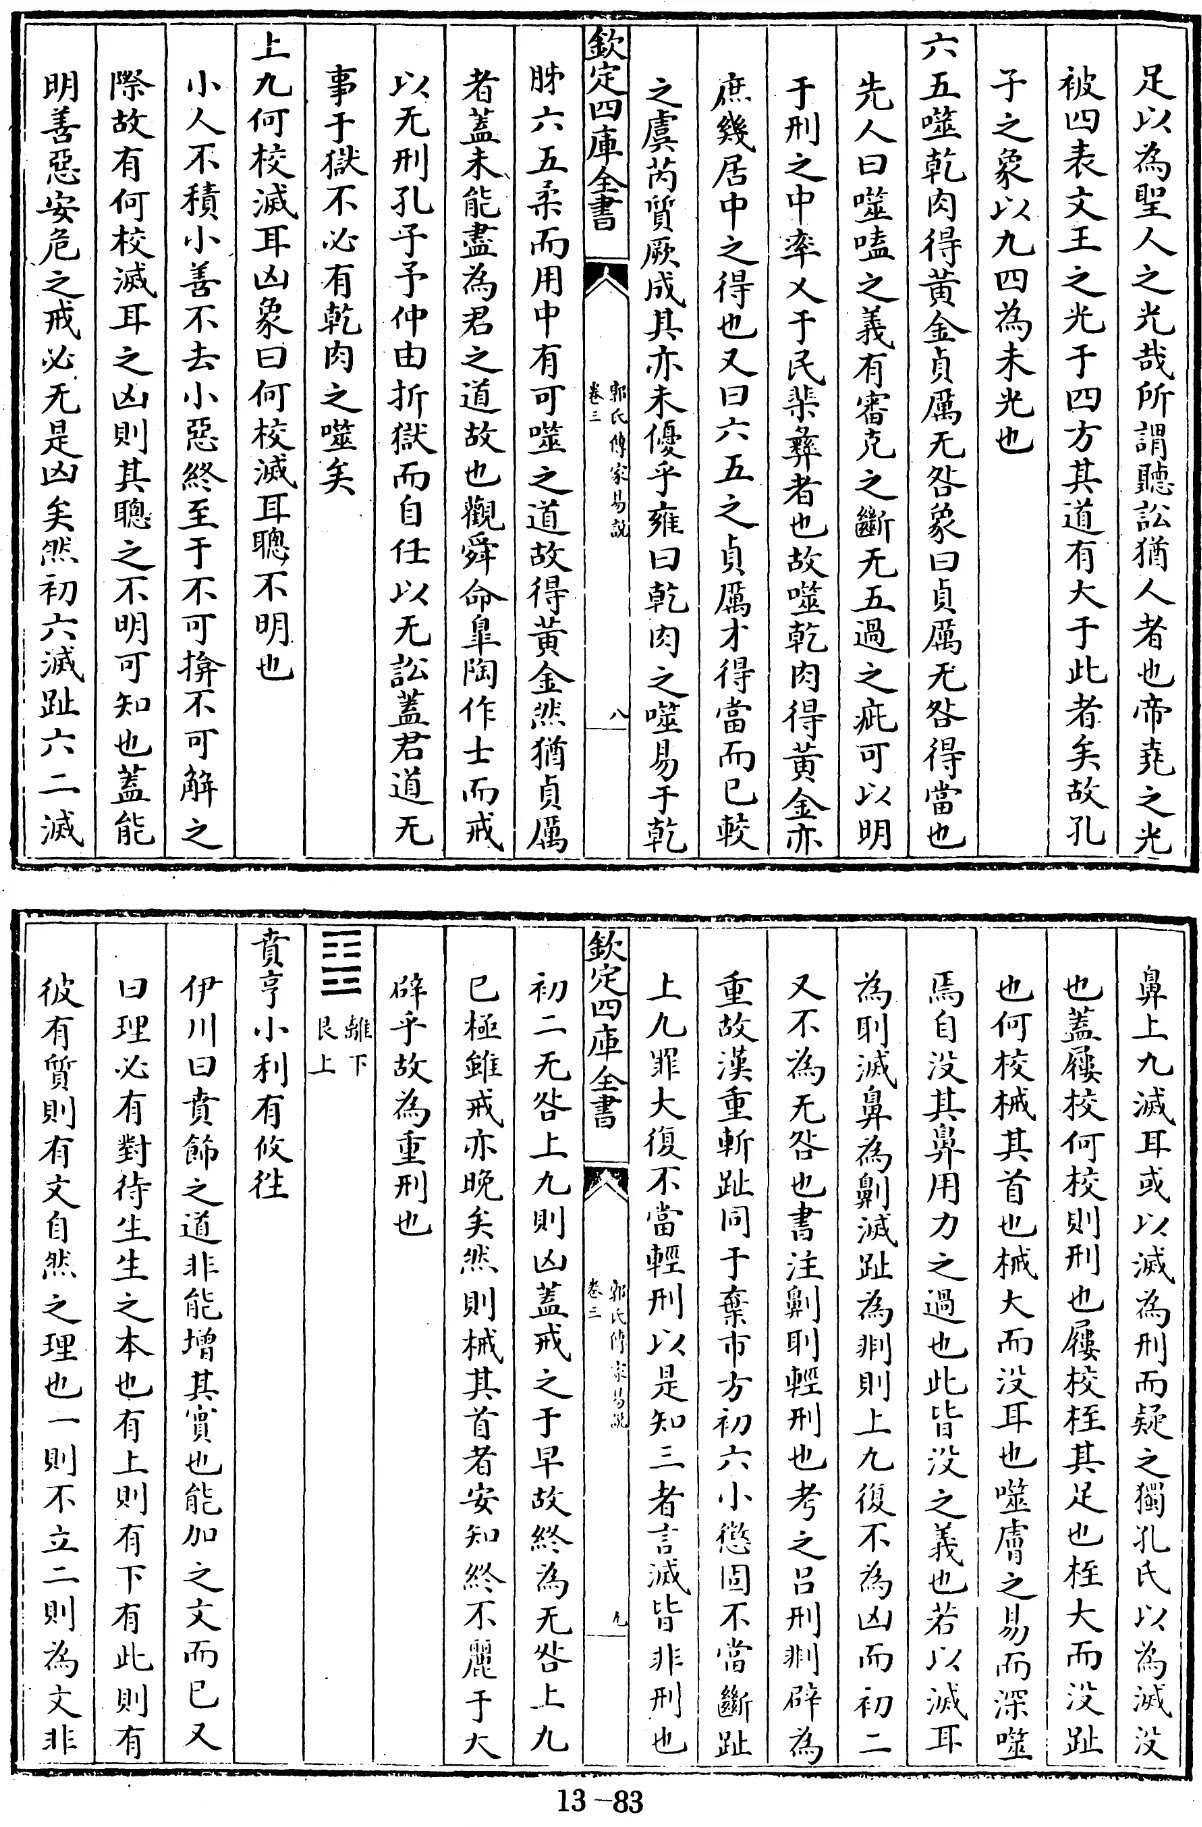 足以為聖人之光哉所謂聽訟猶人者也帝堯之光
被四表文王之光于四方其道有大于此者矣故孔
子之象以九四為未光也
六五噬乾肉得黃金貞厲无咎象曰貞厲无咎得當也
先人曰噬嗑之義有審克之斷无五過之疵可以明
于刑之中率乂于民棐彝者也故噬乾肉得黃金亦
庶幾居中之得也又曰六五之貞厲才得當而已較
之虞芮質厥成其亦未優乎雍曰乾肉之噬易于乾
欽定四庫全書
郭氏傳家易說
卷三
八
胏六五柔而用中有可噬之道故得黃金然猶貞厲
者蓋未能盡為君之道故也觀舜命臯陶作士而戒
以无刑孔子予仲由折獄而自任以无訟蓋君道无
事于獄不必有乾肉之噬矣
上九何校滅耳凶象曰何校滅耳聰不明也
小人不積小善不去小惡終至于不可揜不可解之
際故有何校滅耳之凶則其聰之不明可知也蓋能
明善惡安危之戒必无是凶矣然初六滅趾六二滅
鼻上九滅耳或以滅為刑而疑之獨孔氏以為滅没
也蓋屨校何校則刑也屨校桎其足也桎大而没趾
也何校械其首也械大而没耳也噬膚之易而深噬
焉自没其鼻用力之過也此皆没之義也若以滅耳
為刵滅鼻為劓滅趾為剕則上九復不為凶而初二
又不為无咎也書注劓刵輕刑也考之吕刑剕辟為
重故漢重斬趾同于棄市方初六小懲固不當斷趾
上九罪大復不當輕刑以是知三者言滅皆非刑也
欽定四庫全書
郭氏傳家易說
卷三
九
初二无咎上九則凶蓋戒之于早故終為无咎上九
已極雖戒亦晚矣然則械其首者安知終不麗于大
辟乎故為重刑也
䷕離下
艮上
賁亨小利有攸往
伊川曰賁飾之道非能增其實也能加之文而已又
曰理必有對待生生之本也有上則有下有此則有
彼有質則有文自然之理也一則不立二則為文非
13-83